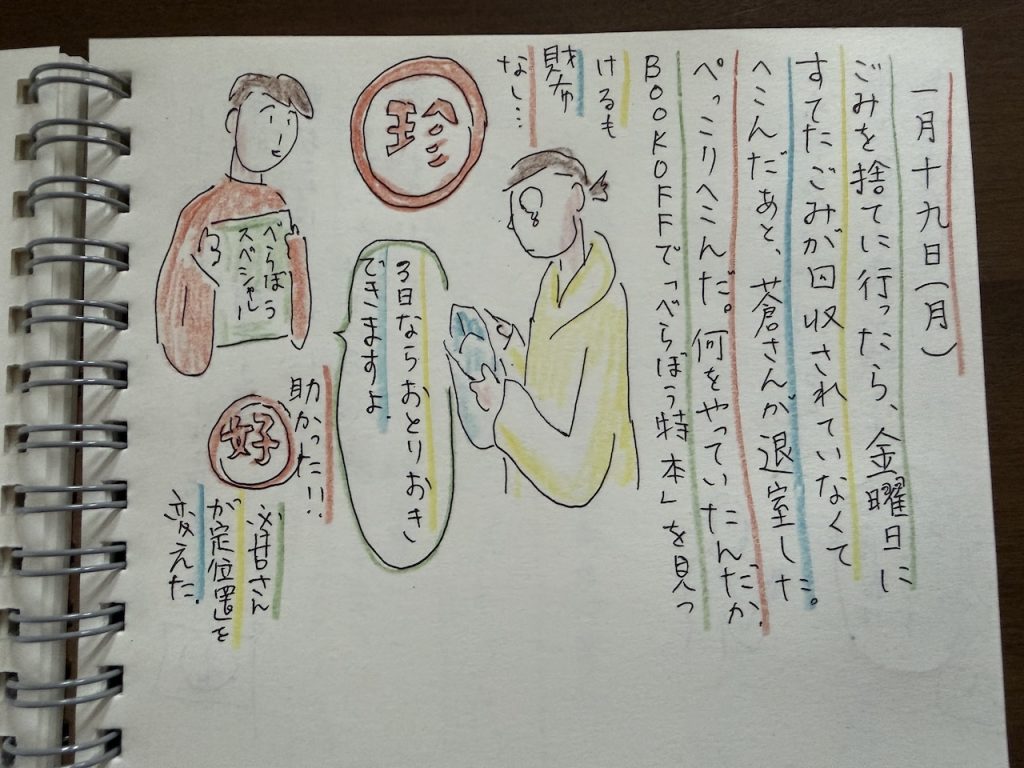 一月十九日(月)
ごみを捨てに行ったら、金曜日に
すてたごみが回収されていなくて
へこんだあと、蒼さんが退室した。
ぺっこりへこんだ。何をやっていたんだか.
BOOKOFFで「べらぼう特本」を見つ
けるも
財布
なし…
珍
3日ならおとりおき
できますよ.
べらぼう
スペシャル
助かった!!
好
さん
が定位置を
変えた.